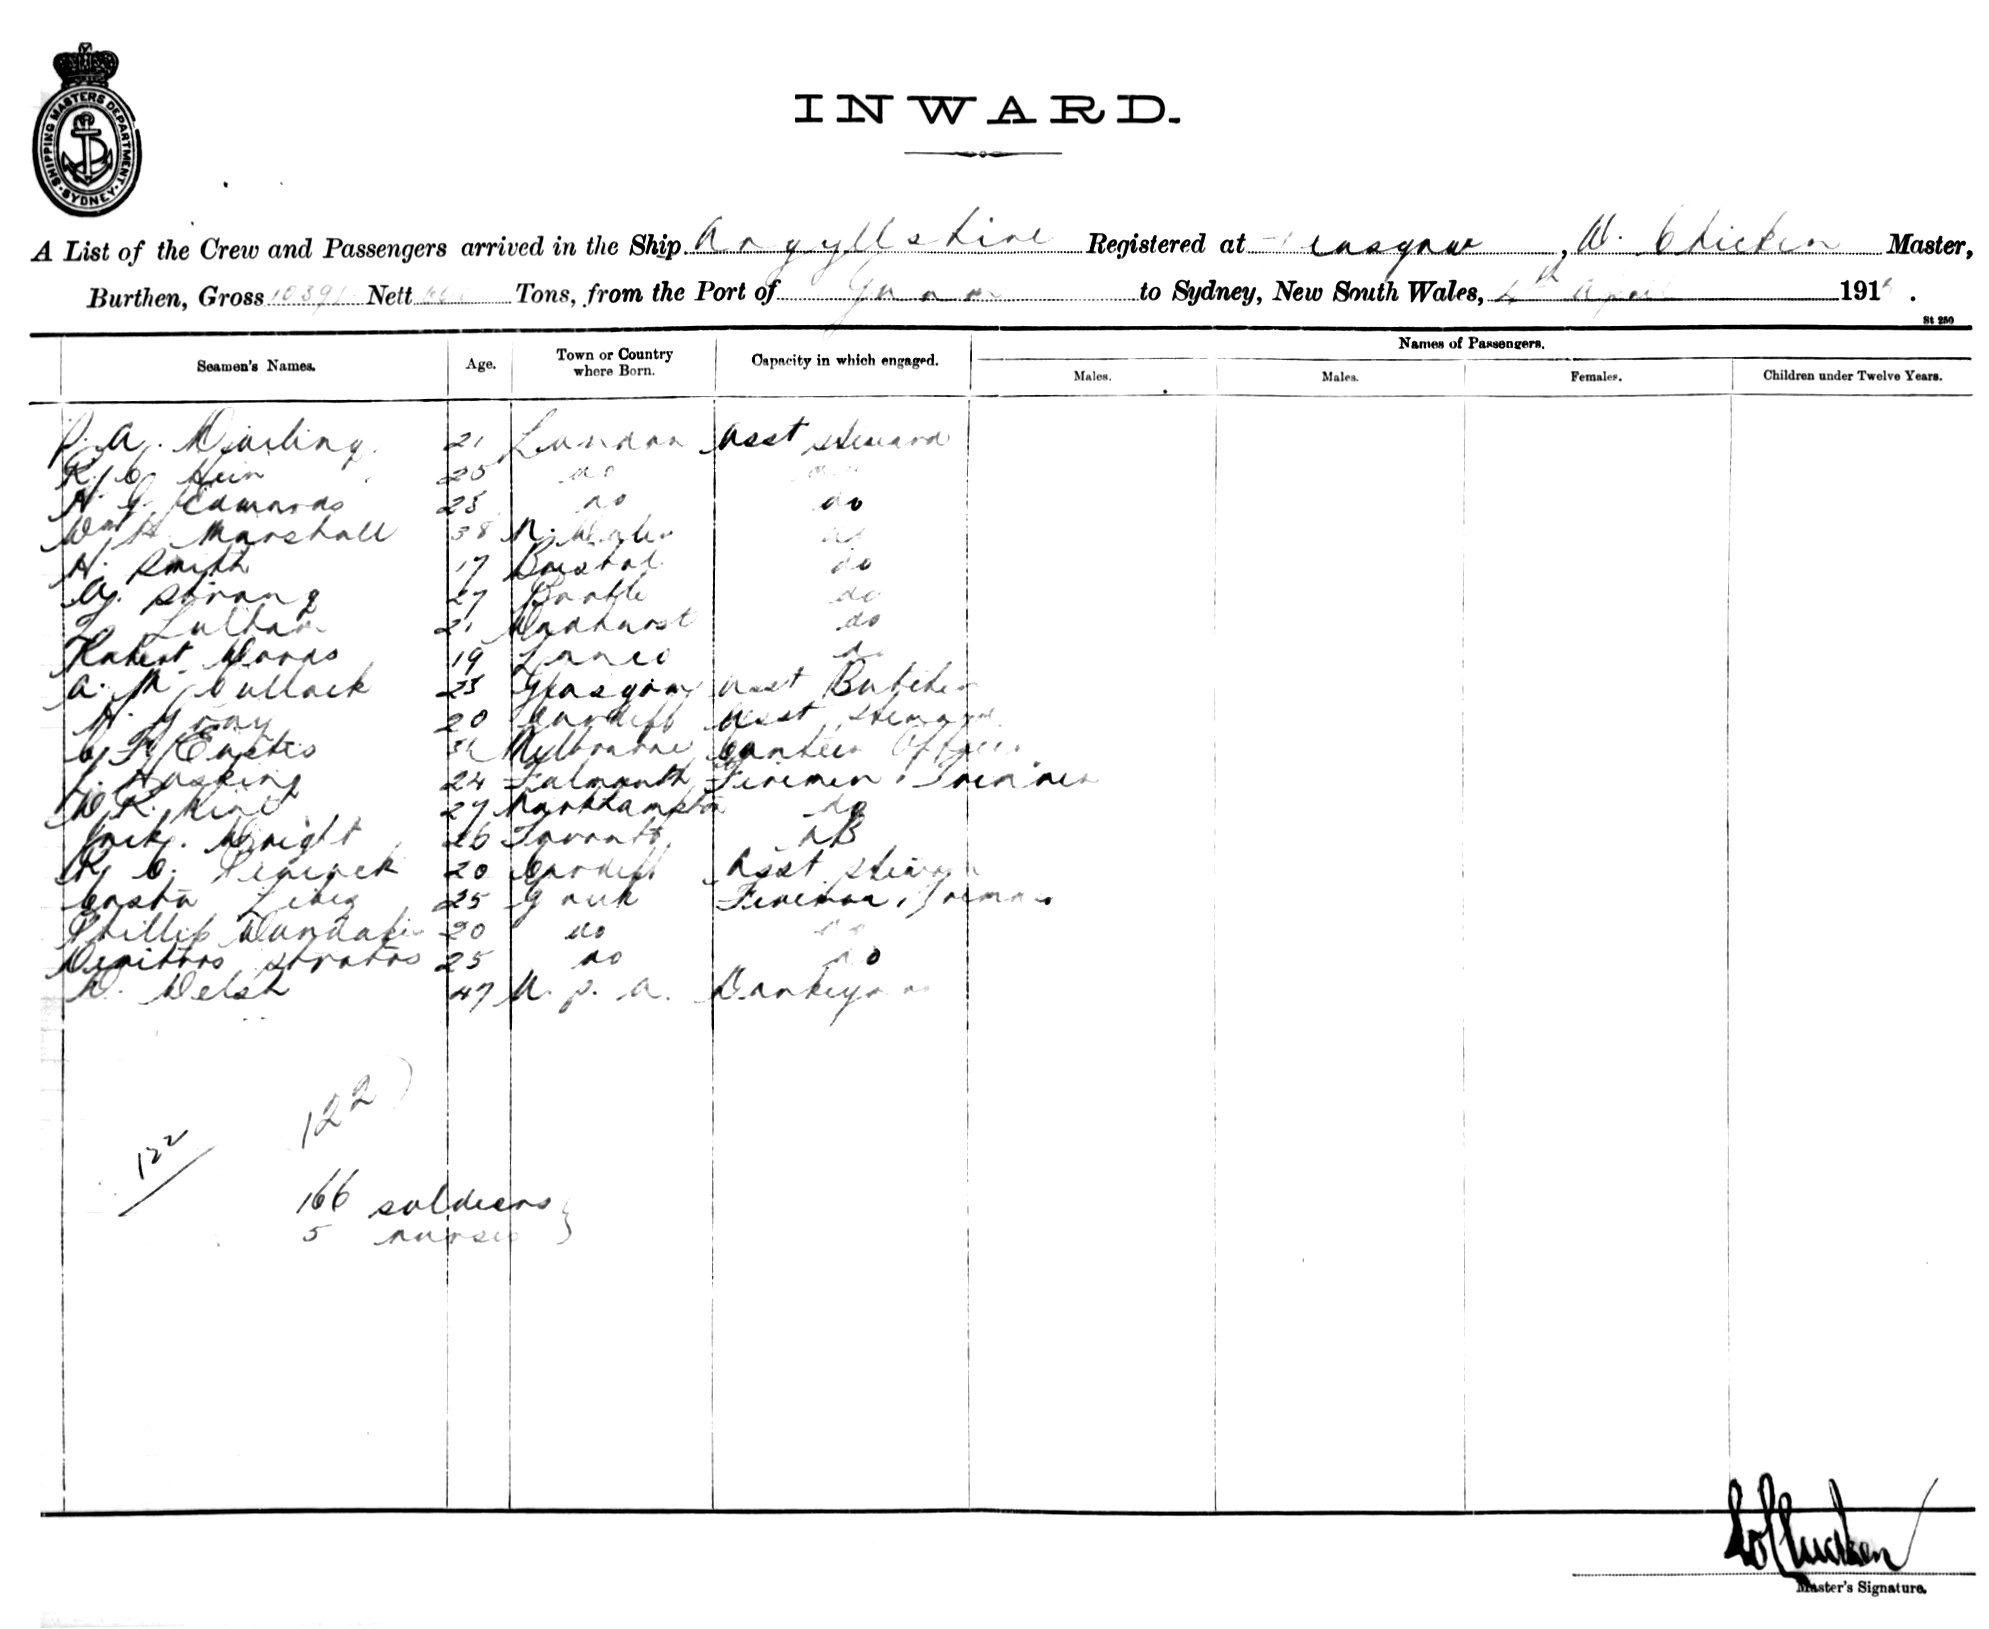 SHIPPING MASTERS DEPARTMENT. SYDNEY
INWARD.
A List of the Crew and Passengers arrived in the Ship Argyllshire Registered at Glasgow, W. Chicken Master,
Burthen, Gross 10391 Nett Tons, from the Port of to Sydney, New South Wales, 4th April 191 .
St 250
Seamen's Names. Age. Town or Country where Born. Capacity in which engaged. Names of Passengers.
Males. Males. Females. Children under Twelve Years.
P. A. Darling 21 London Asst Steward
R. C. Hein 25 do do
H. G. Edwards 23 do do
Wm H. Marshall 38 N. Wales do
H. Smith 17 Bristol do
A. Strang 27 Bootle do
Lulham 21 do
Robert Woods 19 Lancs do
A. Mc Cullock 23 Glasgow Asst Butcher
H. Gray 20 Cardiff Asst Steward
C. F. Eastes Melbourne Canteen Officer
J. Hosking 24 Falmouth Firemen & Trimmer
W. R. 27 Northampton do
Jack Wright 26 Toronto AB
R. C. Peacock 20 Cardiff Asst Steward
Costa 25 Greek Fireman & Trimmer
Phillip 20 do do
Demitros Stratos 25 do do
W. Welsh 47 U. S. A. Donkeyman
122
122
166 soldiers
5 nurses
Master's Signature.